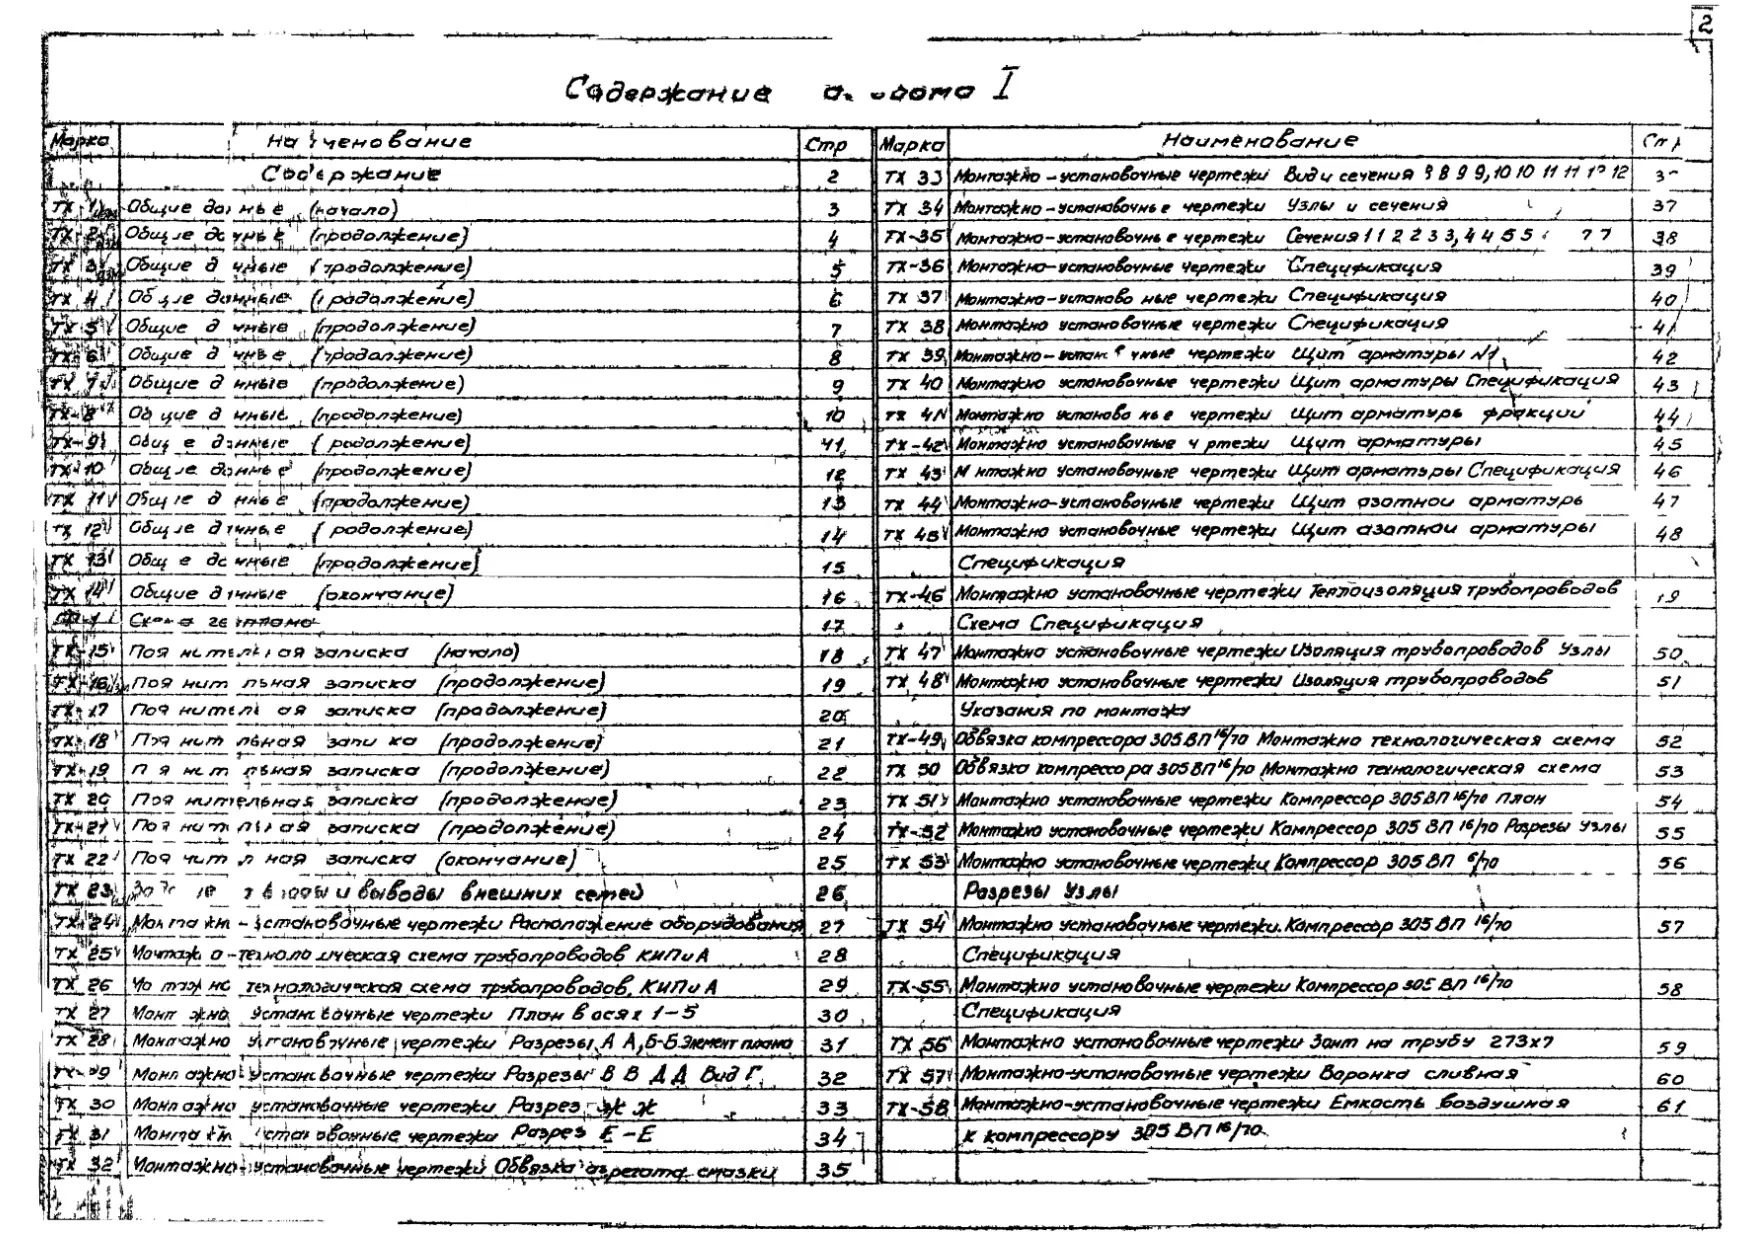 2
Содержание I
Марка Наименование Стр
Содержание 2
ТХ-1 Общие данные (начало) 3
ТХ-2 Общие данные (продолжение) 4
ТХ-3 Общие данные (продолжение) 5
ТХ-4 Общие данные (продолжение) 6
ТХ-5 Общие данные (продолжение) 7
ТХ-6 Общие данные (продолжение) 8
ТХ-7 Общие данные (продолжение) 9
ТХ-8 Общие данные (продолжение) 10
ТХ-9 Общие данные (продолжение) 11
ТХ-10 Общие данные (продолжение) 12
ТХ 11 Общие данные (продолжение) 13
ТХ 12 Общие данные (продолжение) 14
ТХ 13 Общие данные (продолжение) 15
ТХ 14 Общие данные (окончание) 16
Схема генплана 17
ТХ-15 Пояснительная записка (начало) 18
ТХ-16 Пояснительная записка (продолжение) 19
ТХ-17 Пояснительная записка (продолжение) 20
ТХ-18 Пояснительная записка (продолжение) 21
ТХ-19 Пояснительная записка (продолжение) 22
ТХ 20 Пояснительная записка (продолжение) 23
ТХ-21 Пояснительная записка (продолжение) 24
ТХ 22 Пояснительная записка (окончание) 25
ТХ 23 и выводы внешних сетей 26
ТХ-24 Монтажно-установочные чертежи Расположение оборудования 27
ТХ 25 Монтажно-технологическая схема трубопроводов КИПиА 28
ТХ 26 Монтажно технологическая схема трубопроводов. КИПиА 29
ТХ 27 Монтажно установочные чертежи План в осях 1-5 30
ТХ 28 Монтажно установочные чертежи Разрезы А А, Б-Б Элемент плана 31
ТХ-29 Монтажно установочные чертежи Разрезы В В Д Д Вид Г 32
ТХ 30 Монтажно установочные чертежи Разрез Ж Ж 33
ТХ 31 Монтажно установочные чертежи Разрез Е-Е 34
ТХ 32 Монтажно-установочные чертежи Обвязка агрегата смазки 35
Марка Наименование Стр
ТХ 33 Монтажно-установочные чертежи Виды сечения 8 8 9 9, 10 10 11 11 12 12
ТХ 34 Монтажно-установочные чертежи Узлы и сечения 37
ТХ-35 Монтажно-установочные чертежи Сечения 1 1 2 2 3 3, 4 4 5 5 7 7 38
ТХ-36 Монтажно-установочные чертежи Спецификация 39
ТХ 37 Монтажно-установочные чертежи Спецификация 40
ТХ 38 Монтажно установочные чертежи Спецификация 41
ТХ 39 Монтажно-установочные чертежи Щит арматуры №1 42
ТХ 40 Монтажно установочные чертежи Щит арматуры Спецификация 43
ТХ 41 Монтажно установочные чертежи Щит арматуры фракции 44
ТХ-42 Монтажно установочные чертежи Щит арматуры 45
ТХ 43 Монтажно установочные чертежи Щит арматуры Спецификация 46
ТХ 44 Монтажно-установочные чертежи Щит азотной арматуры 47
ТХ 45 Монтажно установочные чертежи Щит азотной арматуры 48
Спецификация
ТХ-46 Монтажно установочные чертежи Теплоизоляция трубопроводов 49
Схема Спецификация
ТХ 47 Монтажно установочные чертежи Изоляция трубопроводов Узлы 50
ТХ 48 Монтажно установочные чертежи Изоляция трубопроводов 51
Указания по монтажу
ТХ-49 Обвязка компрессора 305ВП 16/70 Монтажно технологическая схема 52
ТХ 50 Обвязка компрессора 305ВП 16/70 Монтажно технологическая схема 53
ТХ 51 Монтажно установочные чертежи Компрессор 305ВП 16/70 План 54
ТХ-52 Монтажно установочные чертежи Компрессор 305 ВП 16/70 Разрезы Узлы 55
ТХ 53 Монтажно установочные чертежи Компрессор 305ВП 16/70 56
Разрезы Узлы
ТХ 54 Монтажно установочные чертежи. Компрессор 305 ВП 16/70 57
Спецификация
ТХ-55 Монтажно установочные чертежи Компрессор 305 ВП 16/70 58
Спецификация
ТХ 56 Монтажно установочные чертежи Зонт на трубу 273х7 59
ТХ 57 Монтажно-установочные чертежи Воронка сливная 60
ТХ-58 Монтажно-установочные чертежи Емкость воздушная 61
к компрессору 305 ВП 16/70